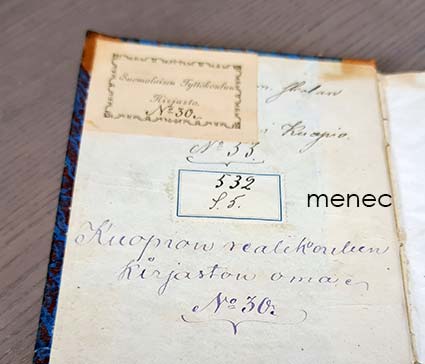 Suomalaisen Tyttökoulun
Kirjasto.
No 30.
Kuopio
No 53.
532
f. 5.
menec
Kuopion realikoulun
kirjaston omai
No 30.